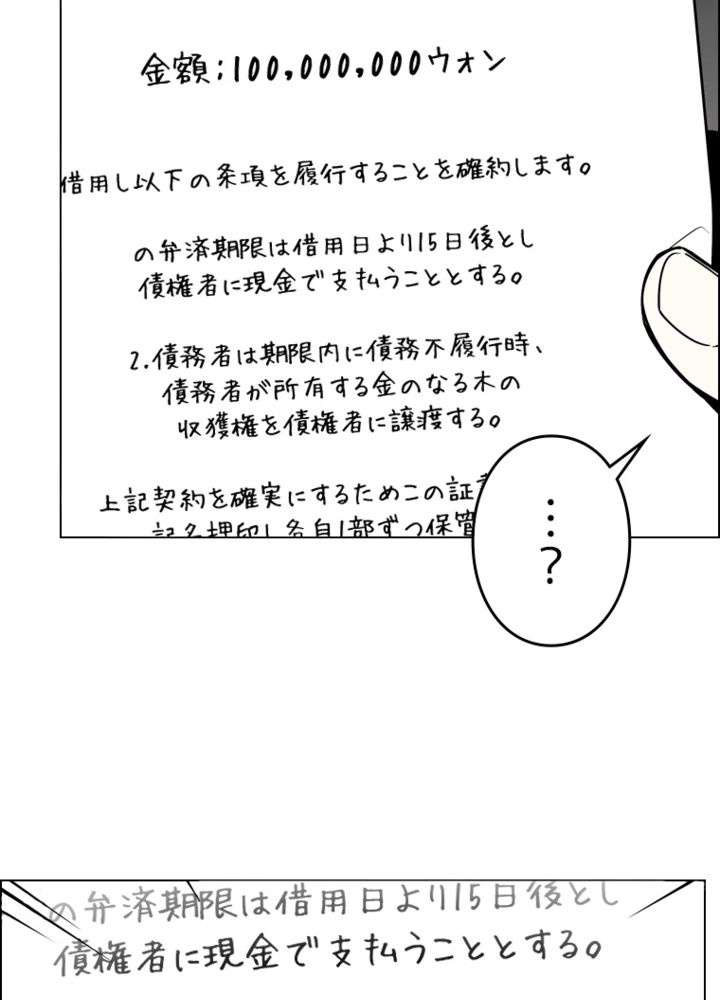 金額:100,000,000ウォン
借用し以下の条項を履行することを確約します。
の弁済期限は借用日より15日後とし
債権者に現金で支払うこととする。
2.債務者は期限内に債務不履行時、
債務者が所有する金のなる木の
収獲権を債権者に譲渡する。
上記契約を確実にするためこの証
記名押印し各自1部ずつ保管
…?
の弁済期限は借用日より15日後とし
債権者に現金で支払うこととする。